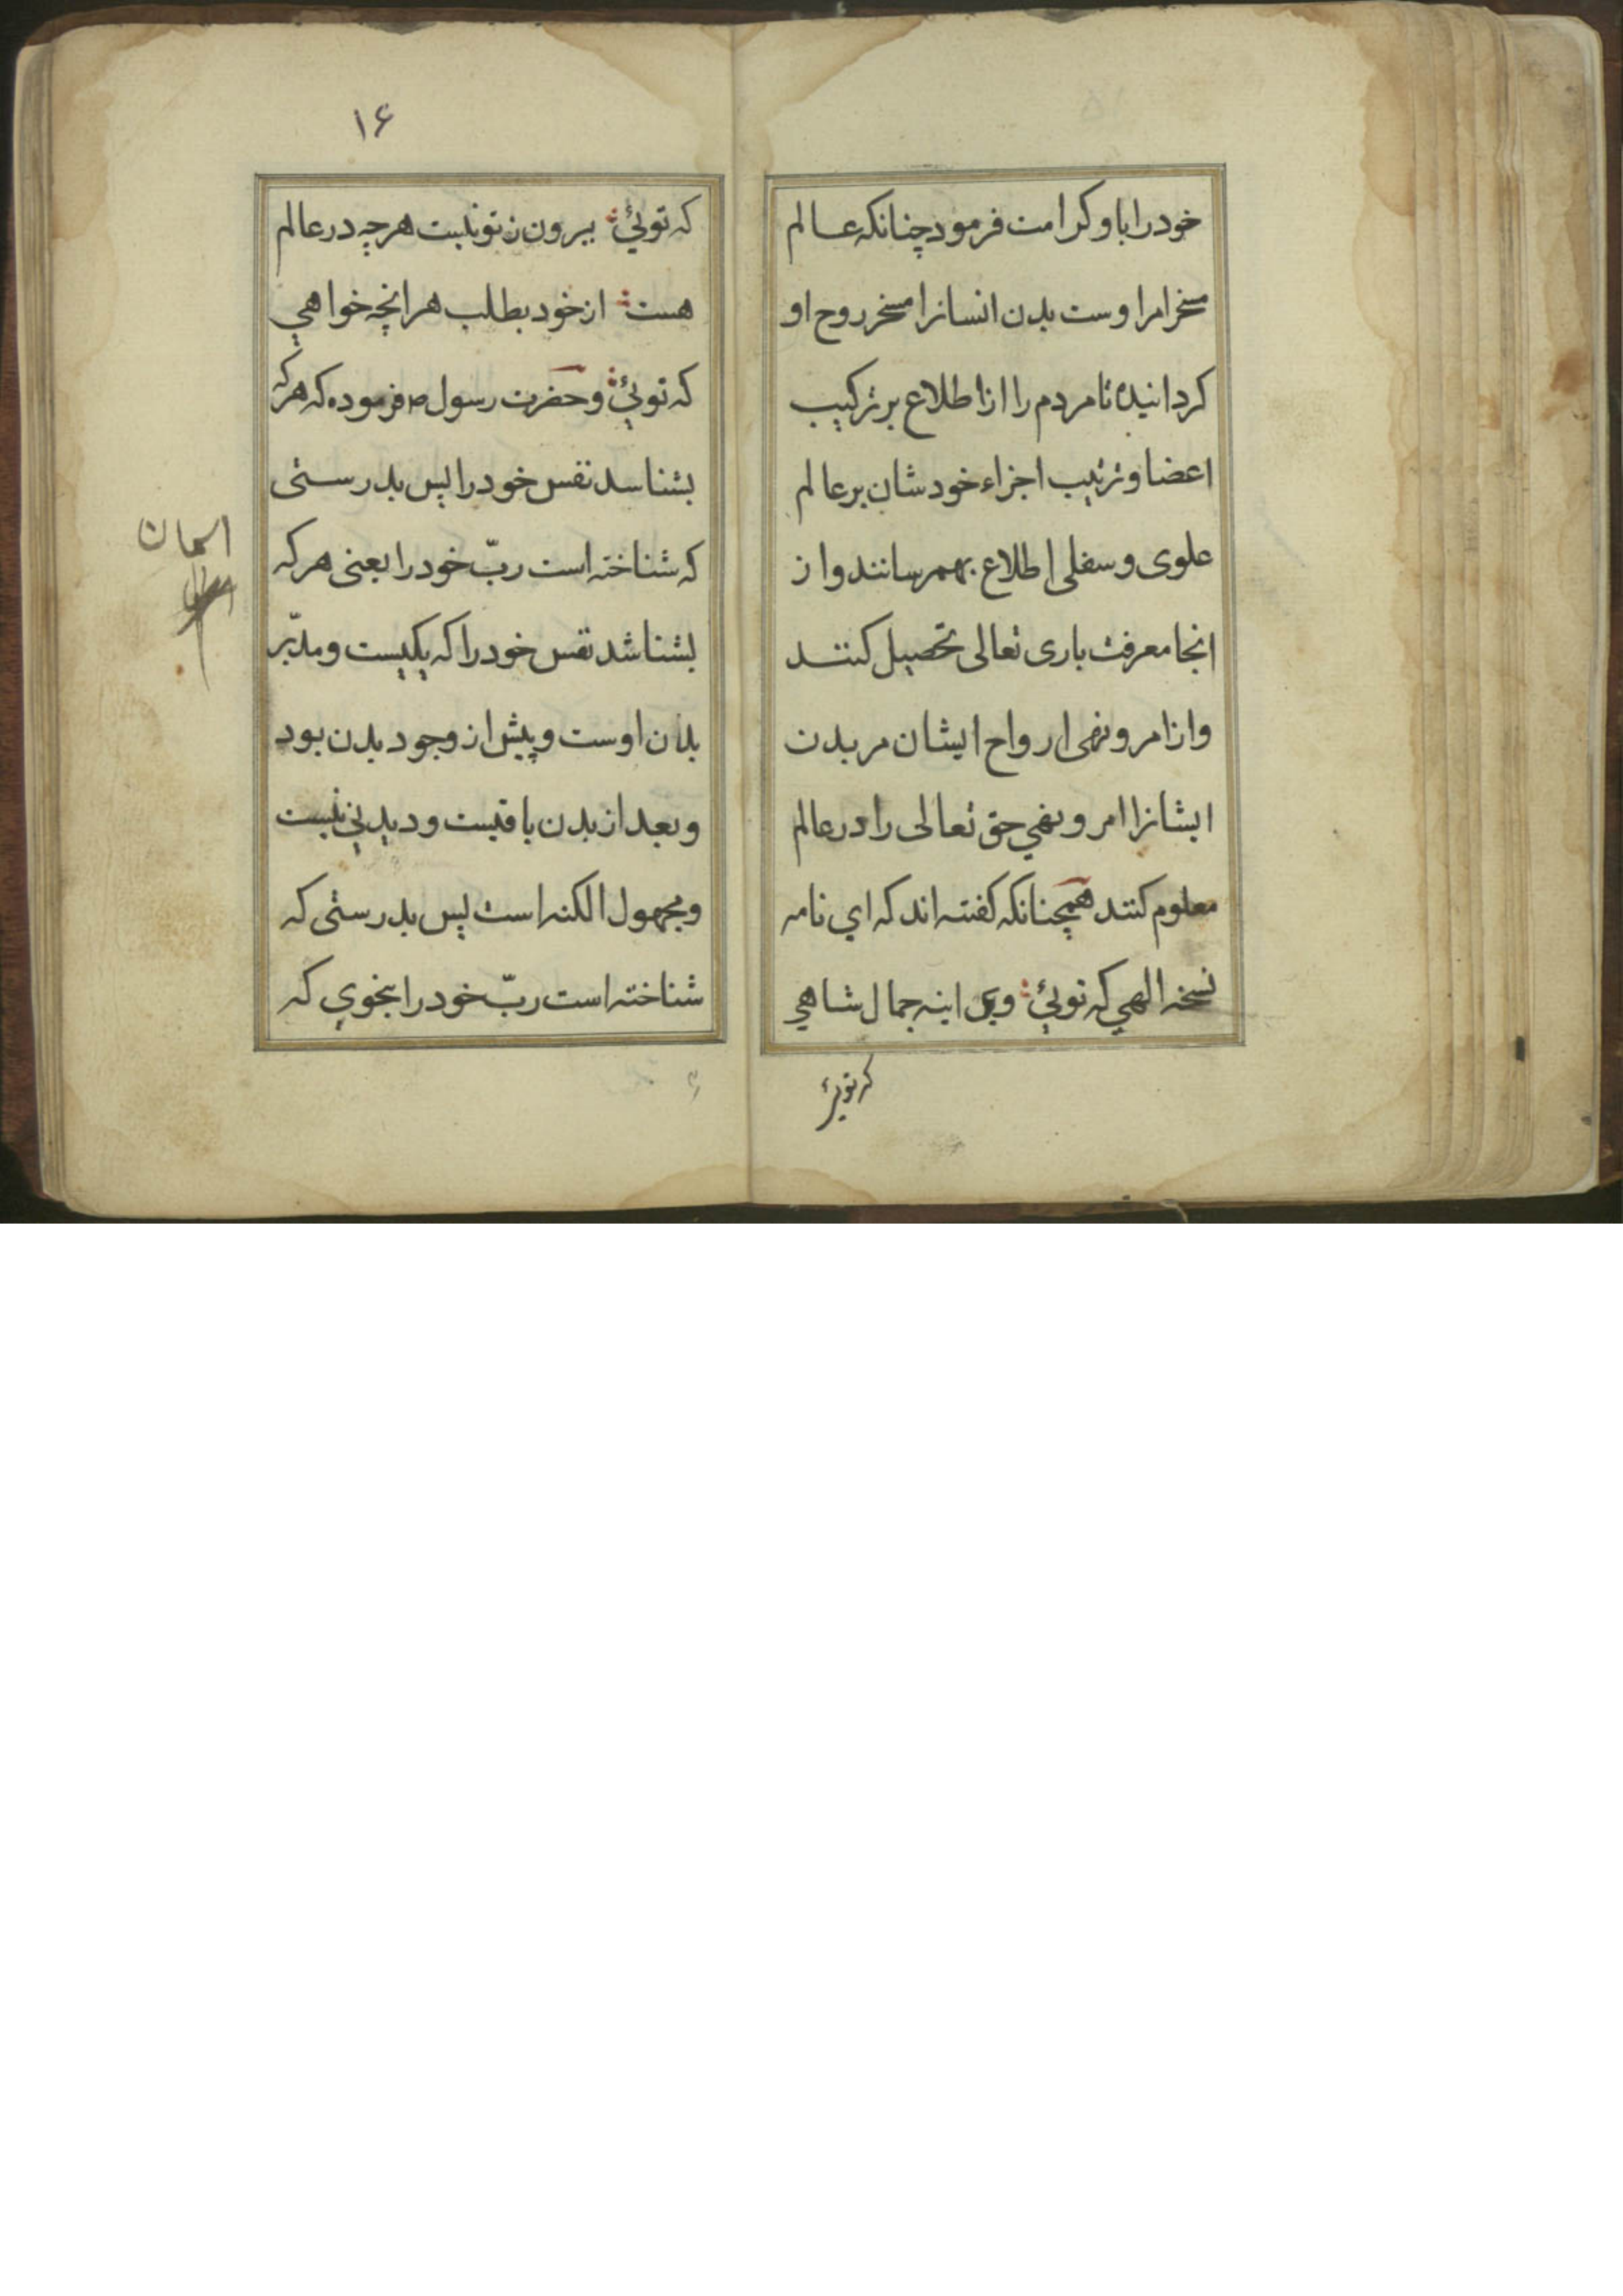 خود را باو کرامت فرمود چنانکه عالم
مسخر امر اوست بدن انسانرا مسخر روح او
کردانیده تا مردم را از اطلاع بر ترکیب
اعضا و ترتیب اجزاء خودشان بر عالم
علوی و سفلی اطلاع بهمرسانند و از
انجا معرفت باری تعالی تحصیل کنند
و از امر و نهی ارواح ایشان مر بدن
ایشانرا امر و نهی حق تعالی را در عالم
معلوم کنند همچنانکه کفته اند که ای نامه
نسخه الهی که توئی وی اینه جمال شاهی
که توئی
۱۶
که توئی بیرون ز تو نیست هرچه در عالم
هست از خود بطلب هرانچه خواهی
که توئی و حضرت رسول ص فرموده که هرکه
بشناسد نفس خود را پس بدرستی
که شناخته است ربّ خود را یعنی هرکه
بشناشد نفس خود را که یکیست و مدبّر
بدن اوست و پیش از وجود بدن بود
و بعد از بدن باقیست و دیدنی نیست
و مجهول الکنه است پس بدرستی که
شناخته است ربّ خود را بنحوی که